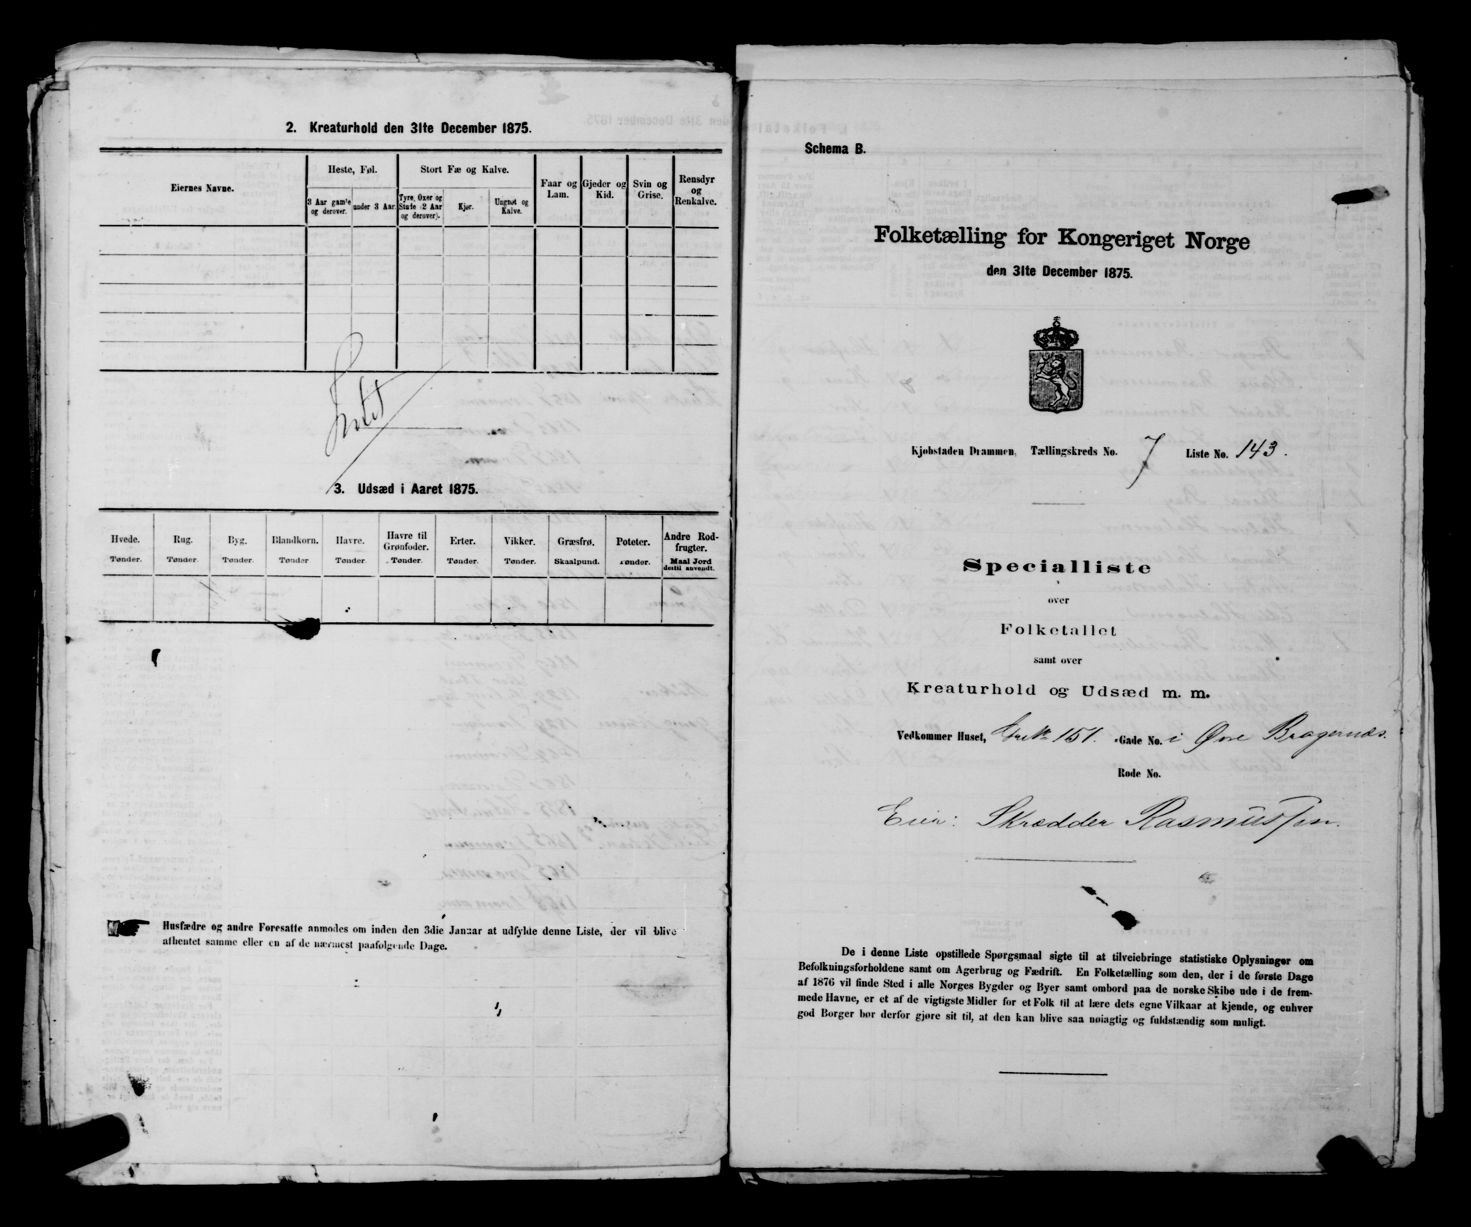 2. Kreaturhold den 31te December 1875.
Eiernes Navne.
Heste, Føl.
Stort Fæ og Kalve.
Faar og Lam.
Gjeder og Kid.
Svin og Grise.
Rensdyr og Renkalve.
3 Aar gamle og derover.
under 3 Aar.
Tyre, Oxer og Stude (2 Aar og derover).
Kjør.
Ungnøt og Kalve.
Intet
3. Udsæd i Aaret 1875.
Hvede. Rug. Byg. Blandkorn. Havre. Havre til Grønfoder. Erter. Vikker. Græsfrø. Poteter. Andre Rodfrugter.
Tønder. Tønder. Tønder. Tønder Tønder. Tønder. Tønder. Tønder. Skaalpund. Tønder. Maal Jord dertil anvendt.
Husfædre og andre Foresatte anmodes om inden den 3die Januar at udfylde denne Liste, der vil blive
afhentet samme eller en af de nærmest paafølgende Dage.
Schema B.
Folketælling for Kongeriget Norge
den 31te December 1875.
Kjøbstaden Drammen. Tællingskreds No. 7 Liste No. 143.
Specialliste
over
Folketallet
samt over
Kreaturhold og Udsæd m. m.
Vedkommer Huset, 151. Gade No. i Øvre Bragernæs.
Rode No.
Eier: Skrædder Rasmussen.
De i denne Liste opstillede Spørgsmaal sigte til at tilveiebringe statistiske Oplysninger om
Befolkningsforholdene samt om Agerbrug og Fædrift. En Folketælling som den, der i de første Dage
af 1876 vil finde Sted i alle Norges Bygder og Byer samt ombord paa de norske Skibe ude i de frem-
mede Havne, er et af de vigtigste Midler for et Folk til at lære dets egne Vilkaar at kjende, og enhver
god Borger bør derfor gjøre sit til, at den kan blive saa nøiagtig og fuldstændig som muligt.